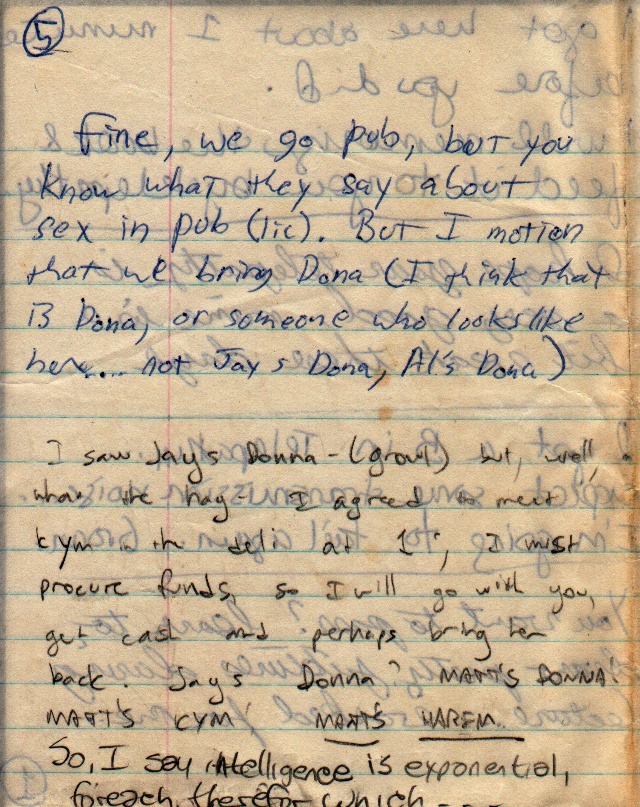 5
Fine, we go pub, but you
know what they say about
sex in pub (lic). But I motion
that we bring Dona (I think that
is Dona, or someone who looks like
her.... not Jay s Dona, Al's Dona)
I saw Jay's Donna - (growl) but, well,
what the hay - I agreed to meet
Kym in the deli at 1:, I must
procure funds, so I will go with you,
get cash and perhaps bring her
back. Jay's Donna? MATT'S DONNA!
MATT'S KYM! MATT'S HAREM.
So, I say intelligence is exponential,
foreach, therefor which - - -